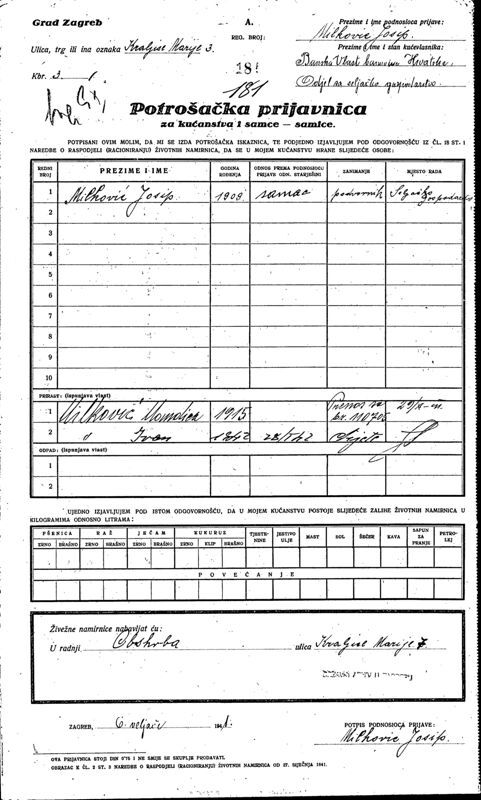 Grad Zagreb
A.
Prezime i ime podnosioca prijave:
Milković Josip.
Ulica, trg ili ina oznaka Kraljice Marije 3.
REG. BROJ:
Prezime i ime i stan kućevlasnika:
Banska Vlast Hrvatske
Kbr. 3
181
Odjel za seljačko gospodarstvo
181
Potrošačka prijavnica
za kućanstva i samce — samice.
POTPISANI OVIM MOLIM, DA MI SE IZDA POTROŠAČKA ISKAZNICA, TE PODJEDNO IZJAVLJUJEM POD ODGOVORNOŠĆU IZ ČL. 18 ST. 1
NAREDBE O RASPODJELI (RACIONIRANJU) ŽIVOTNIH NAMIRNICA, DA SE U MOJEM KUĆANSTVU HRANE SLIJEDEĆE OSOBE:
REDNI BROJ PREZIME I IME GODINA ROĐENJA ODNOS PREMA PODNOSIOCU PRIJAVE ODN. STARJEŠINI ZANIMANJE MJESTO RADA
1 Milković Josip. 1909 samac podvornik Seljačko gospodarstvo
2
3
4
5
6
7
8
9
10
PRIRAST: (ispunjava vlast)
1 Milković 1915 Prenos sa br. 110705
2 " Ivan 1942 28/I 42 Dijete
OTPAD: (ispunjava vlast)
1
2
UJEDNO IZJAVLJUJEM POD ISTOM ODGOVORNOŠĆU, DA U MOJEM KUĆANSTVU POSTOJE SLIJEDEĆE ZALIHE ŽIVOTNIH NAMIRNICA U
KILOGRAMIMA ODNOSNO LITRAMA:
PŠENICA RAŽ JEČAM KUKURUZ TJESTENINE JESTIVO ULJE MAST SOL ŠEĆER KAVA SAPUN ZA PRANJE PETROLEJ
ZRNO BRAŠNO ZRNO BRAŠNO ZRNO BRAŠNO ZRNO KLIP BRAŠNO
POVEĆANJE
Živežne namirnice nabavljat ću:
U radnji Obskrba ulica Kraljice Marije
ZAGREB, 6. veljače 1941.
POTPIS PODNOSIOCA PRIJAVE:
Milković Josip.
OVA PRIJAVNICA STOJI DIN 0'75 I NE SMIJE SE SKUPLJE PRODAVATI.
OBRAZAC K ČL. 2 ST. 3 NAREDBE O RASPODJELI (RACIONIRANJU) ŽIVOTNIH NAMIRNICA OD 27. SIJEČNJA 1941.